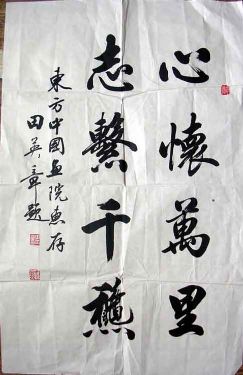 心懷萬里
志繫千穐
東方中國畫院惠存
田英章題